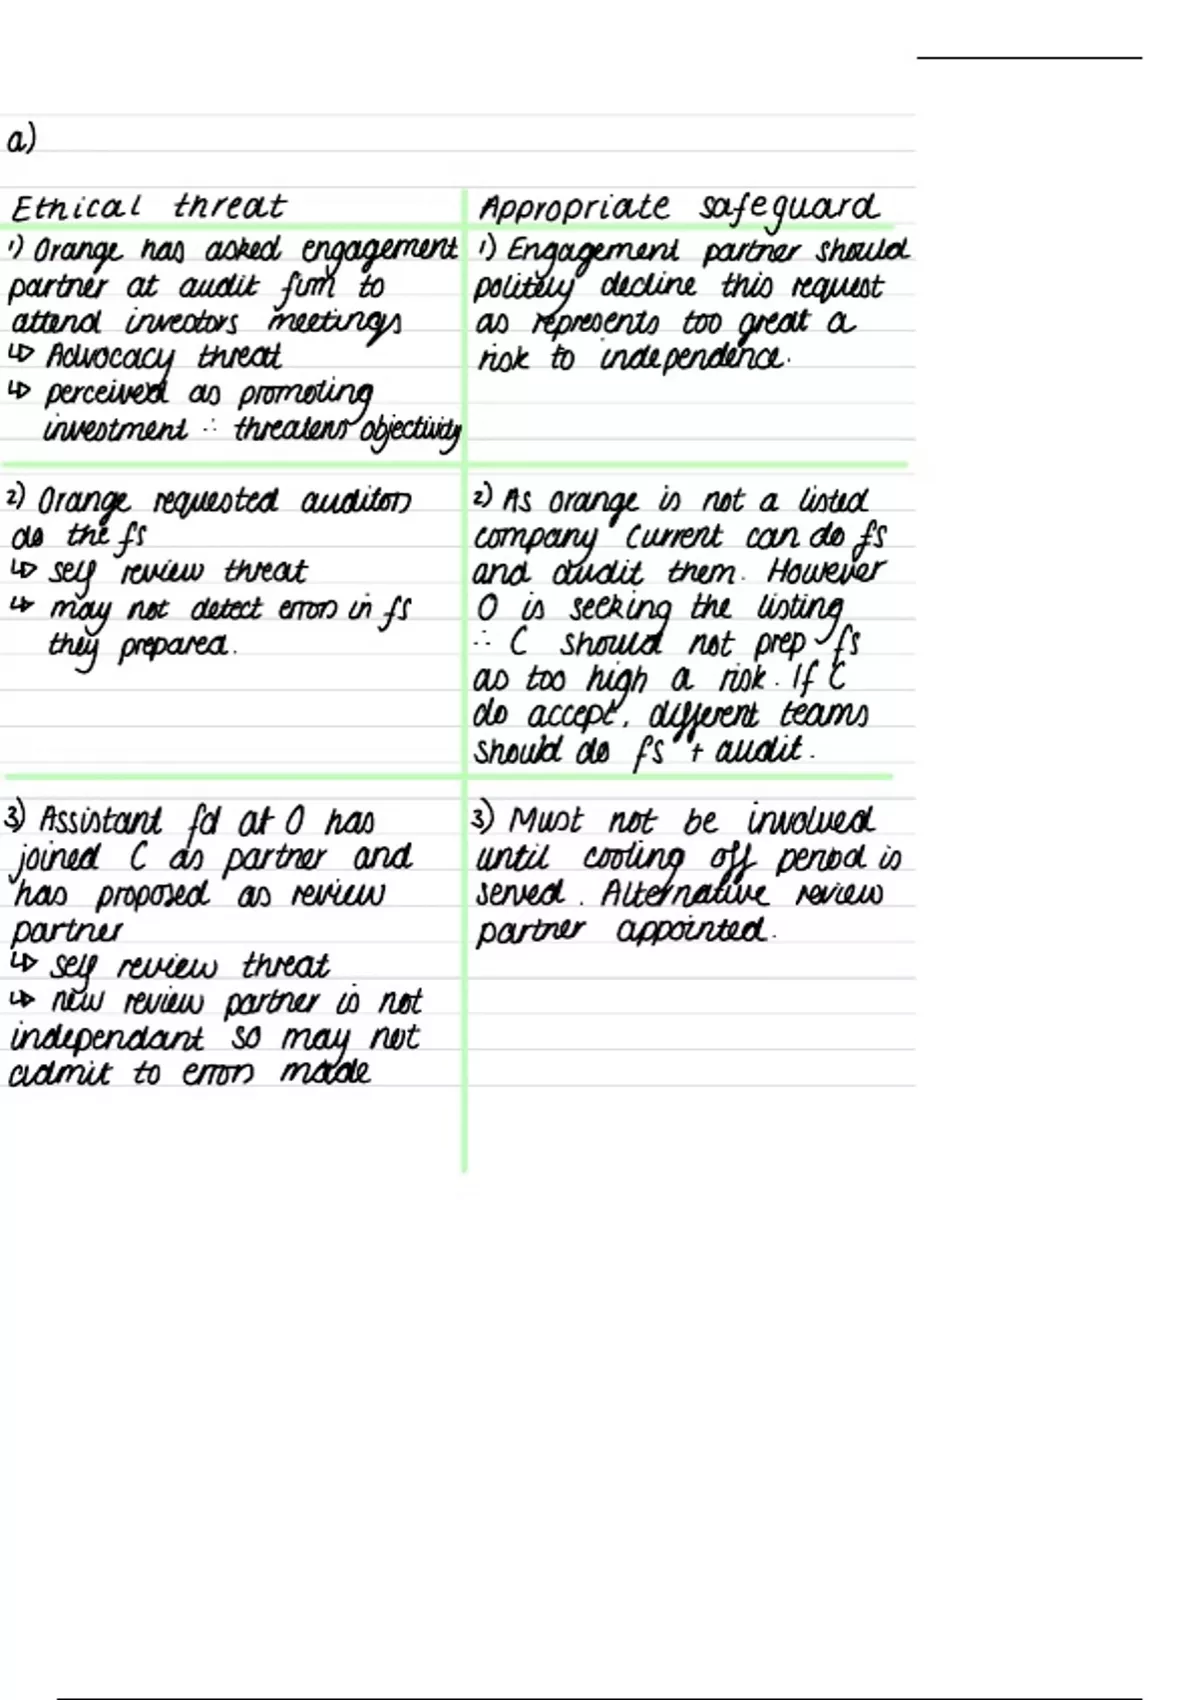 a)
Ethical threat
Appropriate safeguard
1) Orange has asked engagement
partner at audit firm to
attend investors meetings
↳ Advocacy threat
↳ perceived as promoting
investment ∴ threatens objectivity
1) Engagement partner should
politely decline this request
as represents too great a
risk to independence.
2) Orange requested auditors
do the fs
↳ self review threat
↳ may not detect errors in fs
they prepared.
2) As orange is not a listed
company Current can do fs
and audit them. However
O is seeking the listing
∴ C should not prep fs
as too high a risk. If C
do accept, different teams
should do fs + audit.
3) Assistant fd at O has
joined C as partner and
has proposed as review
partner
↳ self review threat
↳ new review partner is not
independant so may not
admit to errors made
3) Must not be involved
until cooling off period is
served. Alternative review
partner appointed.